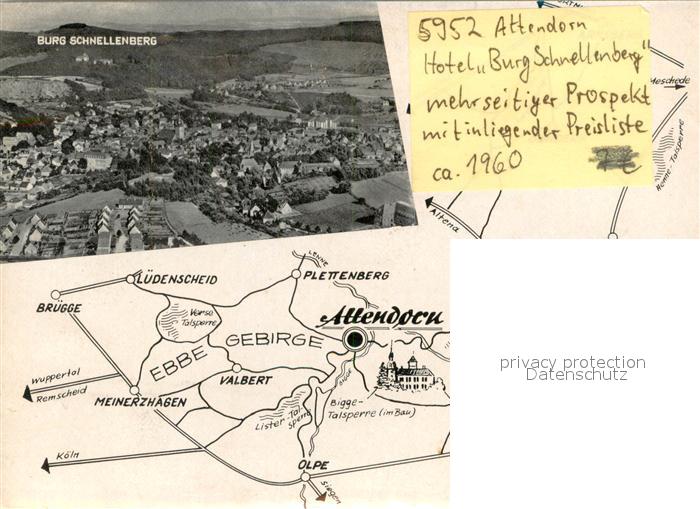 BURG SCHNELLENBERG
5952 Attendorn
Hotel „Burg Schnellenberg"
mehrseitiger Prospekt
mit inliegender Preisliste
ca. 1960
Meschede
Henne-Talsperre
Altena
LENNE
LÜDENSCHEID
PLETTENBERG
BRÜGGE
Verse
Talsperre
Attendorn
EBBE GEBIRGE
Wuppertal
Remscheid
VALBERT
MEINERZHAGEN
BIGGE
Bigge-
Talsperre (im Bau)
Lister-Tal-
sperre
Köln
OLPE
Siegen
privacy protection
Datenschutz